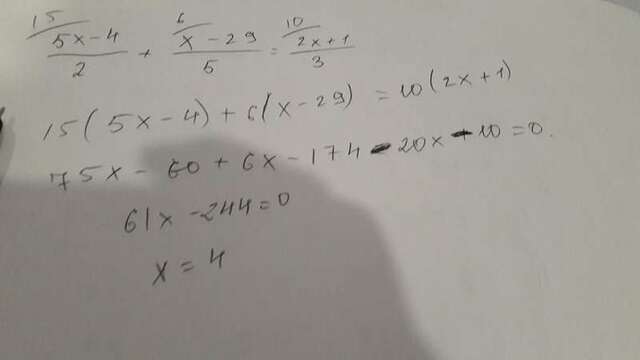 15 6 10
5x-4/2 + x-29/5 = 2x+1/3
15(5x-4)+6(x-29) = 10(2x+1)
75x-60+6x-174-20x-10=0.
61x-244=0
x=4